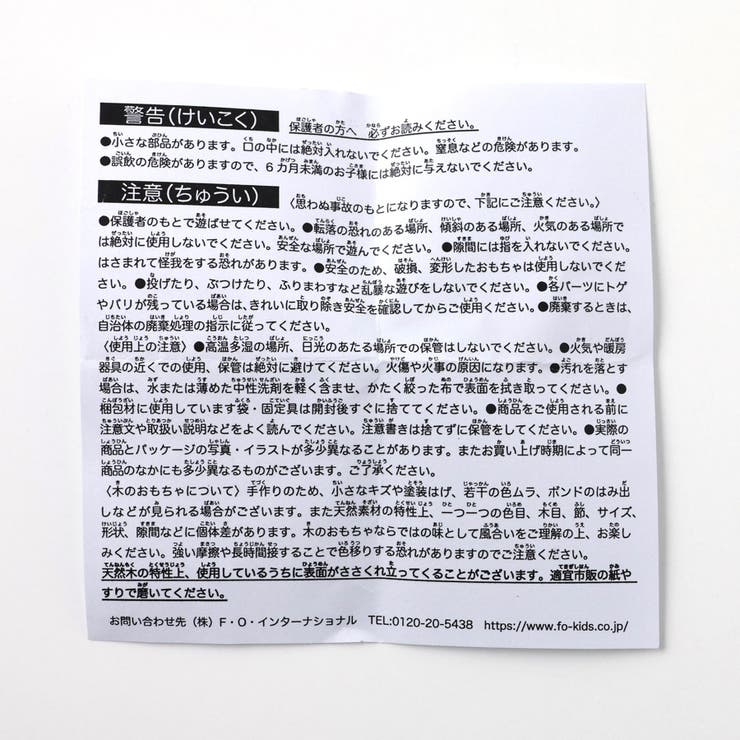 警告(けいこく) 保護者の方へ 必ずお読みください。
●小さな部品があります。口の中には絶対入れないでください。窒息などの危険があります。
●誤飲の危険がありますので、6カ月未満のお子様には絶対に与えないでください。
注意(ちゅうい) 〈思わぬ事故のもとになりますので、下記にご注意ください。〉
●保護者のもとで遊ばせてください。●転落の恐れのある場所、傾斜のある場所、火気のある場所で
は絶対に使用しないでください。安全な場所で遊んでください。●隙間には指を入れないでください。
はさまれて怪我をする恐れがあります。●安全のため、破損、変形したおもちゃは使用しないでくだ
さい。●投げたり、ぶつけたり、ふりまわすなど乱暴な遊びをしないでください。●各パーツにトゲ
やバリが残っている場合は、きれいに取り除き安全を確認してからご使用ください。●廃棄するときは、
自治体の廃棄処理の指示に従ってください。
〈使用上の注意〉●高温多湿の場所、日光のあたる場所での保管はしないでください。●火気や暖房
器具の近くでの使用、保管は絶対に避けてください。火傷や火事の原因になります。●汚れを落とす
場合は、水または薄めた中性洗剤を軽く含ませ、かたく絞った布で表面を拭き取ってください。●
梱包材に使用しています袋・固定具は開封後すぐに捨ててください。●商品をご使用される前に
注意文や取扱い説明などをよく読んでください。注意書きは捨てずに保管をしてください。●実際の
商品とパッケージの写真・イラストが多少異なることがあります。またお買い上げ時期によって同一
商品のなかにも多少異なるものがございます。ご了承ください。
〈木のおもちゃについて〉手作りのため、小さなキズや塗装はげ、若干の色ムラ、ボンドのはみ出
しなどが見られる場合がございます。また天然素材の特性上、一つ一つの色目、木目、節、サイズ、
形状、隙間などに個体差があります。木のおもちゃならではの味として風合いをご理解の上、お楽し
みください。強い摩擦や長時間接することで色移りする恐れがありますのでご注意ください。
天然木の特性上、使用しているうちに表面がささくれ立ってくることがございます。適宜市販の紙や
すりで磨いてください。
お問い合わせ先（株）F・O・インターナショナル TEL:0120-20-5438 https://www.fo-kids.co.jp/